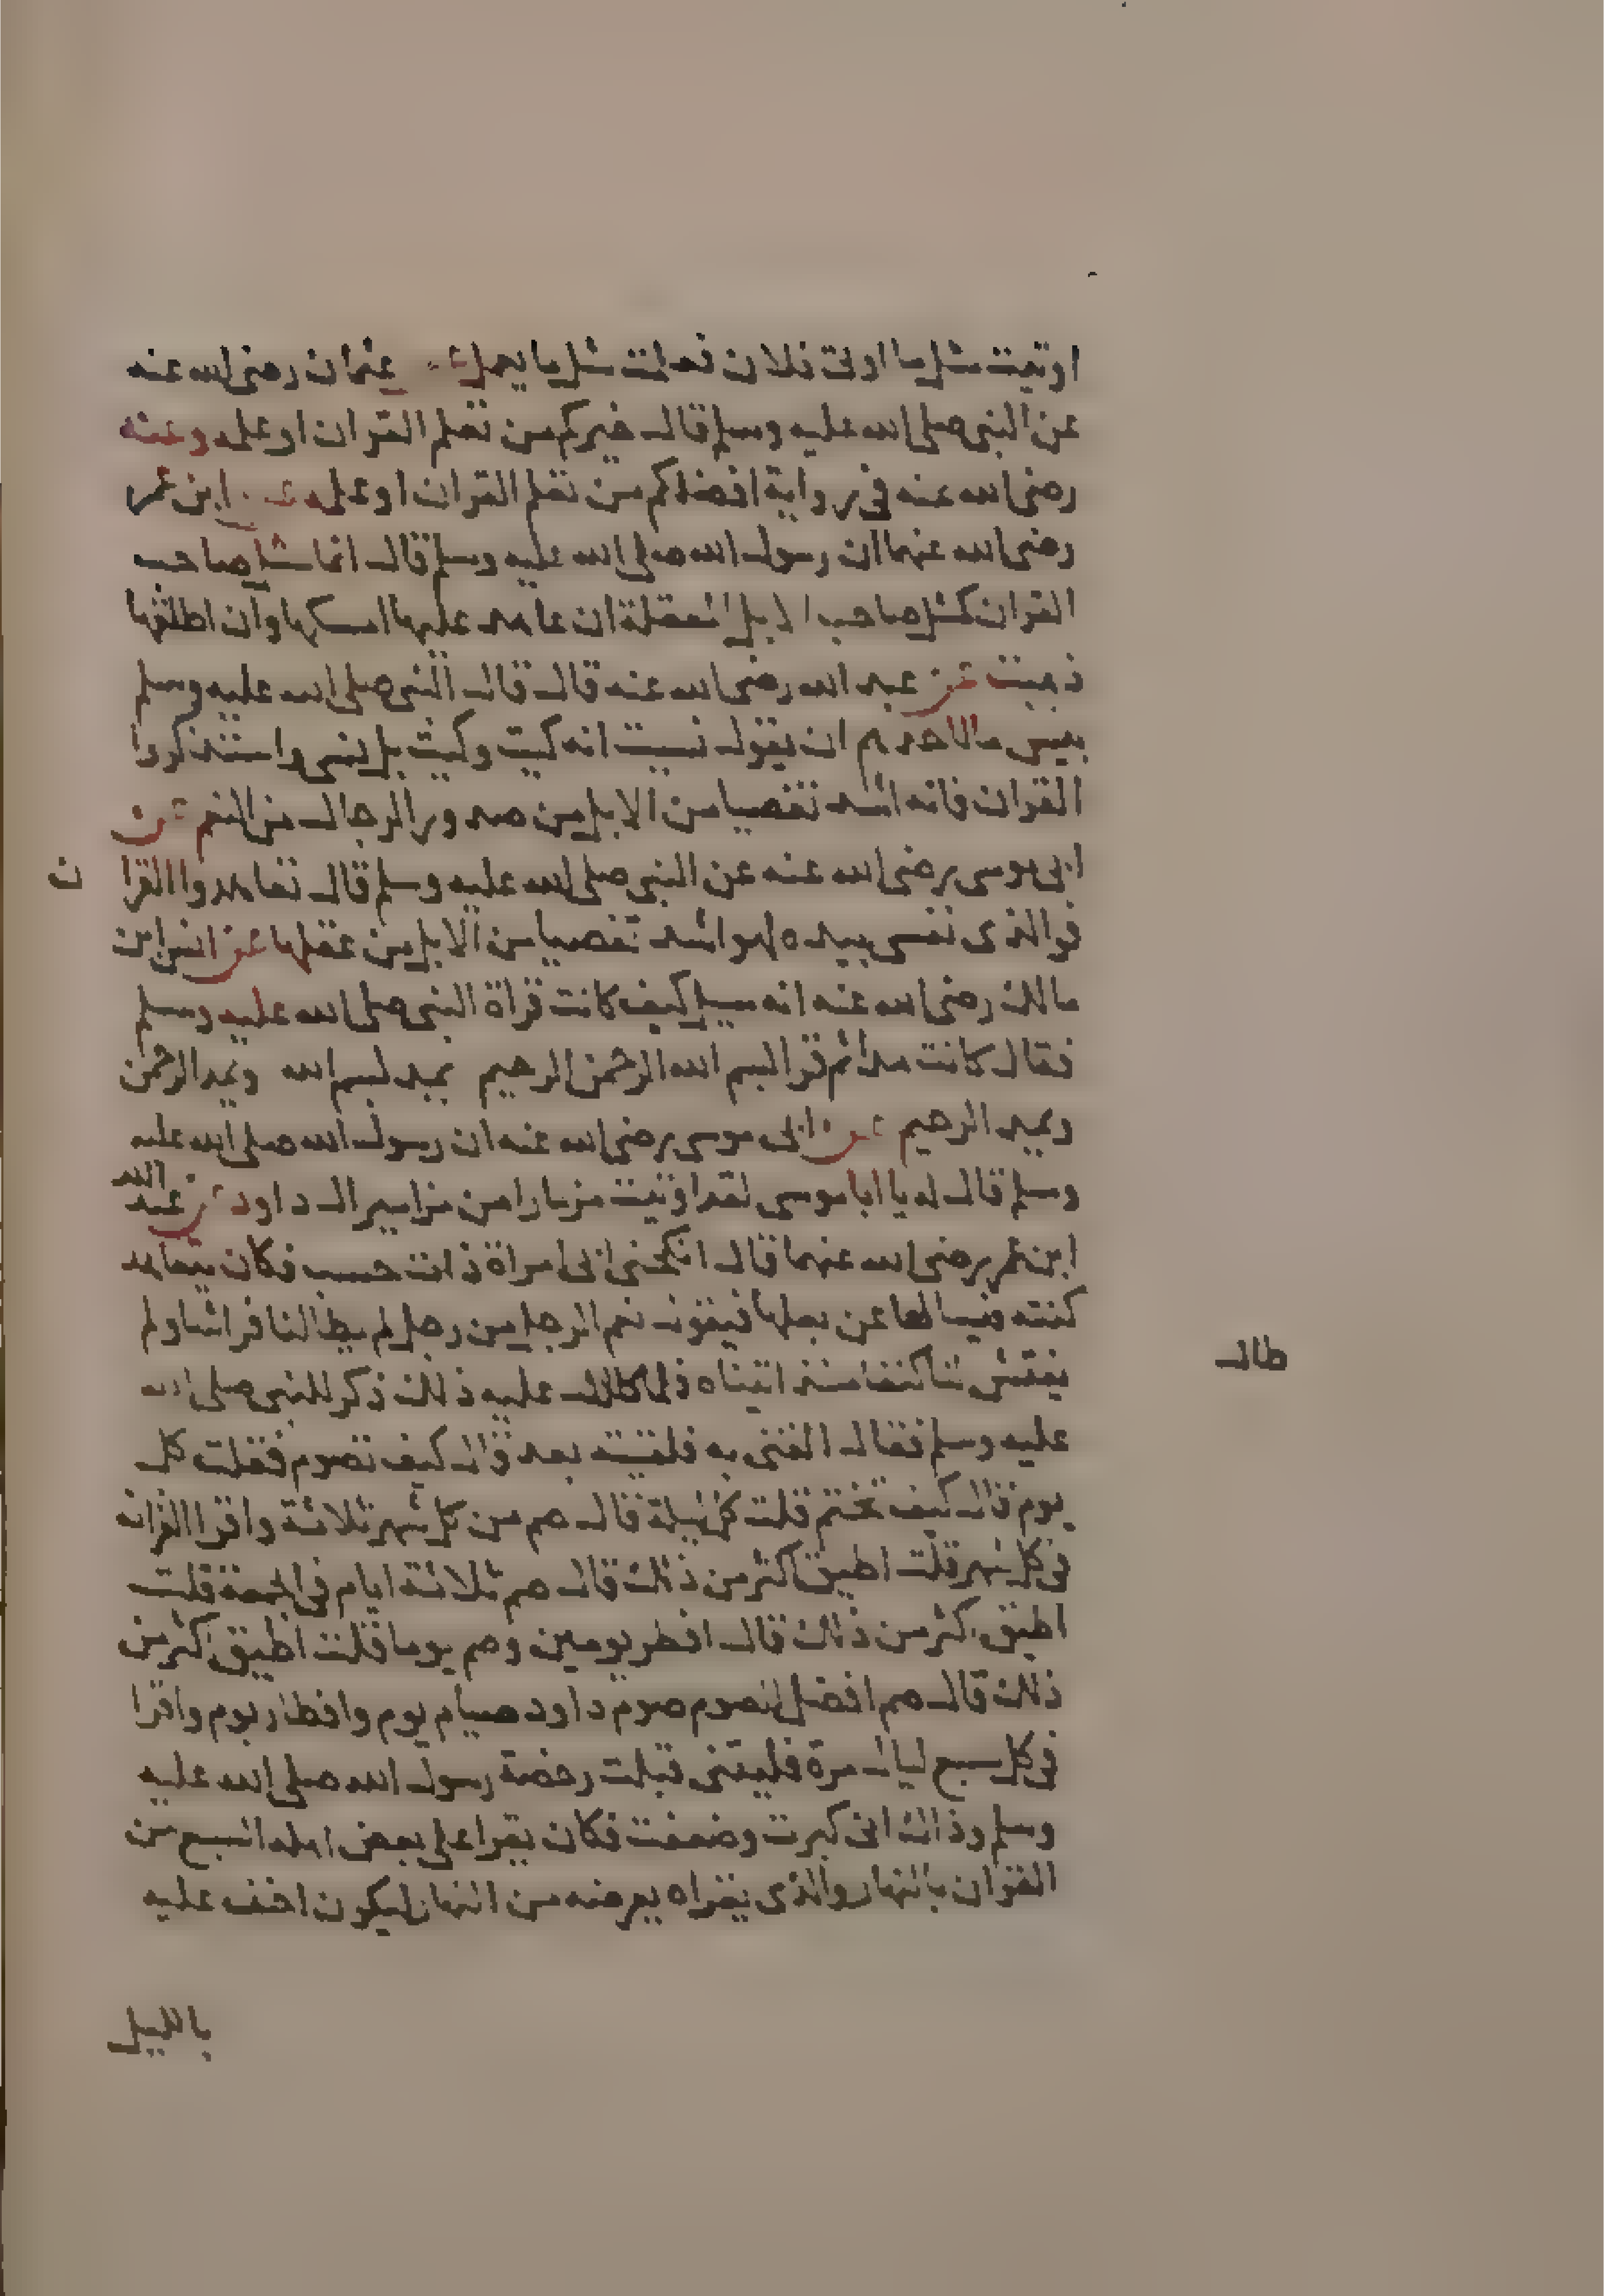 اوتيت مثل ما اوتى فلان فعملت مثل ما يعمل عن عثمان رضى الله عنه
عن النبى صلى الله عليه وسلم قال خيركم من تعلم القران او علمه وعنه
رضى الله عنه فى رواية افضلكم من تعلم القران او علمه عن ابن عمر
رضى الله عنهما ان رسول الله صلى الله عليه وسلم قال انما مثل صاحب
القران كمثل صاحب الابل المعقلة ان عاهد عليها امسكها وان اطلقها
ذهبت عن عبد الله رضى الله عنه قال قال النبى صلى الله عليه وسلم
بيس ما لاحدهم ان يقول نسيت اية كيت وكيت بل نسى واستذكروا
القران فانه اشد تفصيا من الابل من صدور الرجال من النعم عن
ابى موسى رضى الله عنه عن النبى صلى الله عليه وسلم قال تعاهدوا القرا
ن
فوالذى نفسى بيده لهو اشد تفصيا من الابل من عقلها عن انس ابن
مالك رضى الله عنه انه سيل كيف كانت قراة النبى صلى الله عليه وسلم
فقال كانت مدا ثم قرا لبسم الله الرحمن الرحيم يمد لبسم الله ويمد الرحمن
ويمد الرحيم عن ابى موسى رضى الله عنه ان رسول الله صلى الله عليه
وسلم قال له يا ابا موسى لقد اوتيت مزمارا من مزامير ال داود عن عبد الله
ابن عمر رضى الله عنهما قال انكحنى ابى امراة ذات حسب فكان يتعاهد
كنته فيسالها عن بعلها فيقول نعم الرجل من رجل لم يطا لنا فراشا ولم
يفتش لنا كنفا منذ اتيناه فلما طال عليه ذلك ذكر للنبى صلى الله
طال
عليه وسلم فقال القنى به فلقيته بعد قال كيف تصوم فقلت كل
يوم قال كيف تختم قلت كل ليلة قال صم من كل شهر ثلاثة واقرا القران
فى كل شهر قلت اطيق اكثر من ذلك قال صم ثلاثة ايام فى الجمعة قلت
اطيق اكثر من ذلك قال افطر يومين وصم يوما قلت اطيق اكثر من
ذلك قال صم افضل الصوم صوم داود صيام يوم وافطار يوم واقرا
فى كل سبع ليال مرة فليتنى قبلت رخصة رسول الله صلى الله عليه
وسلم وذاك انى كبرت وضعفت فكان يقرا على بعض اهله السبع من
القران بالنهار والذى يقراه يعرضه من النهار ليكون اخف عليه
بالليل